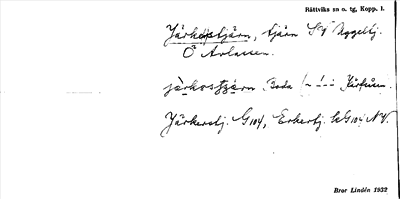 Rättviks sn o. tg, Kopp. l.
Järkostjärn, tjärn SV Nygeltj.
O Arlassen.
järkostjärn. Boda
Järkerstj. G104, Erkertj. kG104 NV.
Bror Lindén 1932